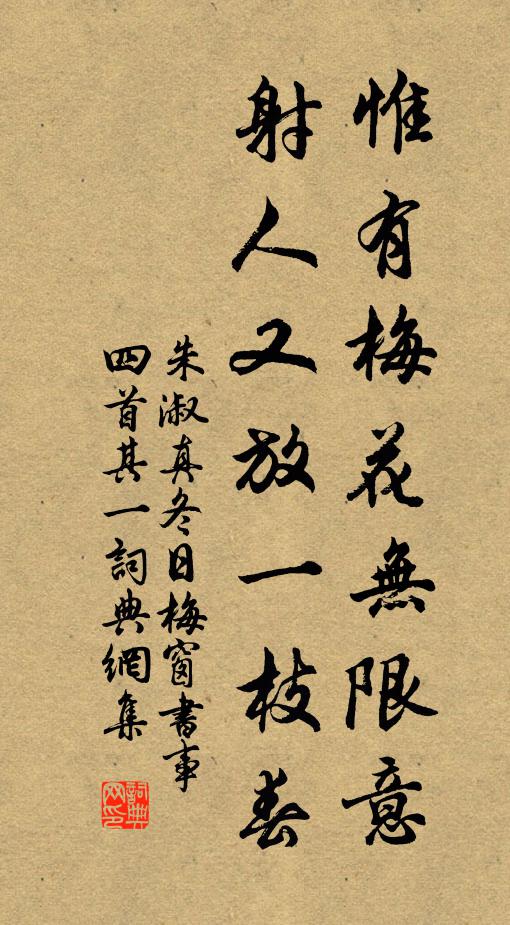 惟有梅花無限意
射人又放一枝春
朱淑真冬日梅窗書事
四首其一詞典網集
詞典
网印